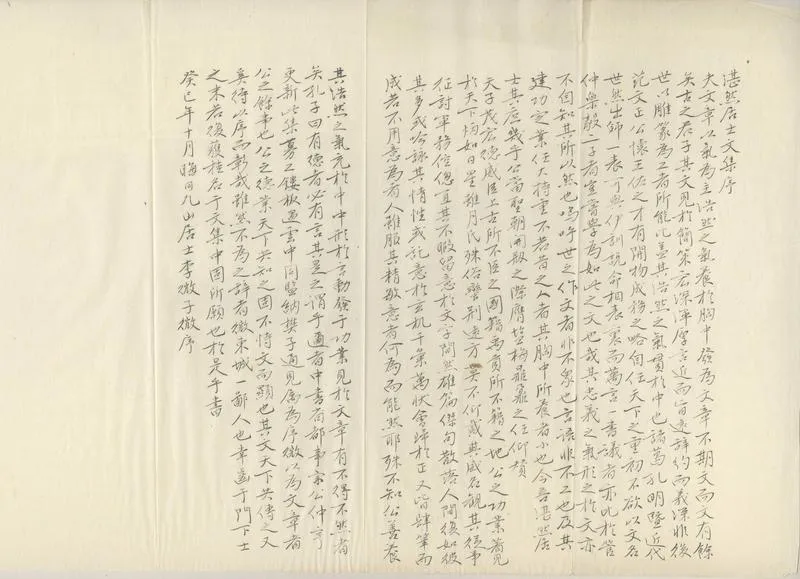 湛然居士文集序
夫文章以氣為主浩然之氣養於胸中發為文章不期文而文有餘
矣古之君子其文見於簡策宏深渾厚言近而旨遠辭約而義深非後
世以雕篆為工者所能比葢其浩然之氣貫於中也諸葛孔明暨近代
范文正公懷王佐之才有開物成務之略自任天下之重初不欲以文名
世然出師一表可與伊訓說命相表裏而萬言一書議者亦比於管
仲樂毅二子者豈嘗學為如此之文也哉其忠義之氣形之於文亦
不自知其所以然也嗚呼世之作文者非不衆也言語非不工也及其
建功定業任大持重不若昔之人者其胸中所養者小也今吾湛然居
士其庶幾乎公當聖朝開剏之際膺鹽梅鼎鼐之任仰贊
天子茂宏德威臣上古所不臣之國籍禹貢所不籍之地公之功業著見
於天下炳如日星雖月氏殊俗蠻荆遠方莫不仰戴其威名觀其從事
征討軍務倥傯宜其不暇留意於文字間然雄篇傑句散落人間復如彼
其多或吟詠其情性或託意於玄机千彙萬狀會歸於正又皆肆筆而
成若不用意為者人雖服其精敏意者何為而能然耶殊不知公善養
其浩然之氣充於中中形於言動發于功業見於文章有不得不然者
矣孔子曰有德者必有言其是之謂乎適者中書省都事宗公仲亨
更新此集募工鏤板過雲中同監納樊子通見属為序微以為文章者
公之餘事也公之德業天下共知之固不待文而顯也其文天下共傳之又
奚待以序而彰哉雖然不為之辭者微東城一鄙人也幸齒于門下士
之末若後獲桂名于文集中固所願也於是乎書
癸巳年十月晦日九山居士李微子微序